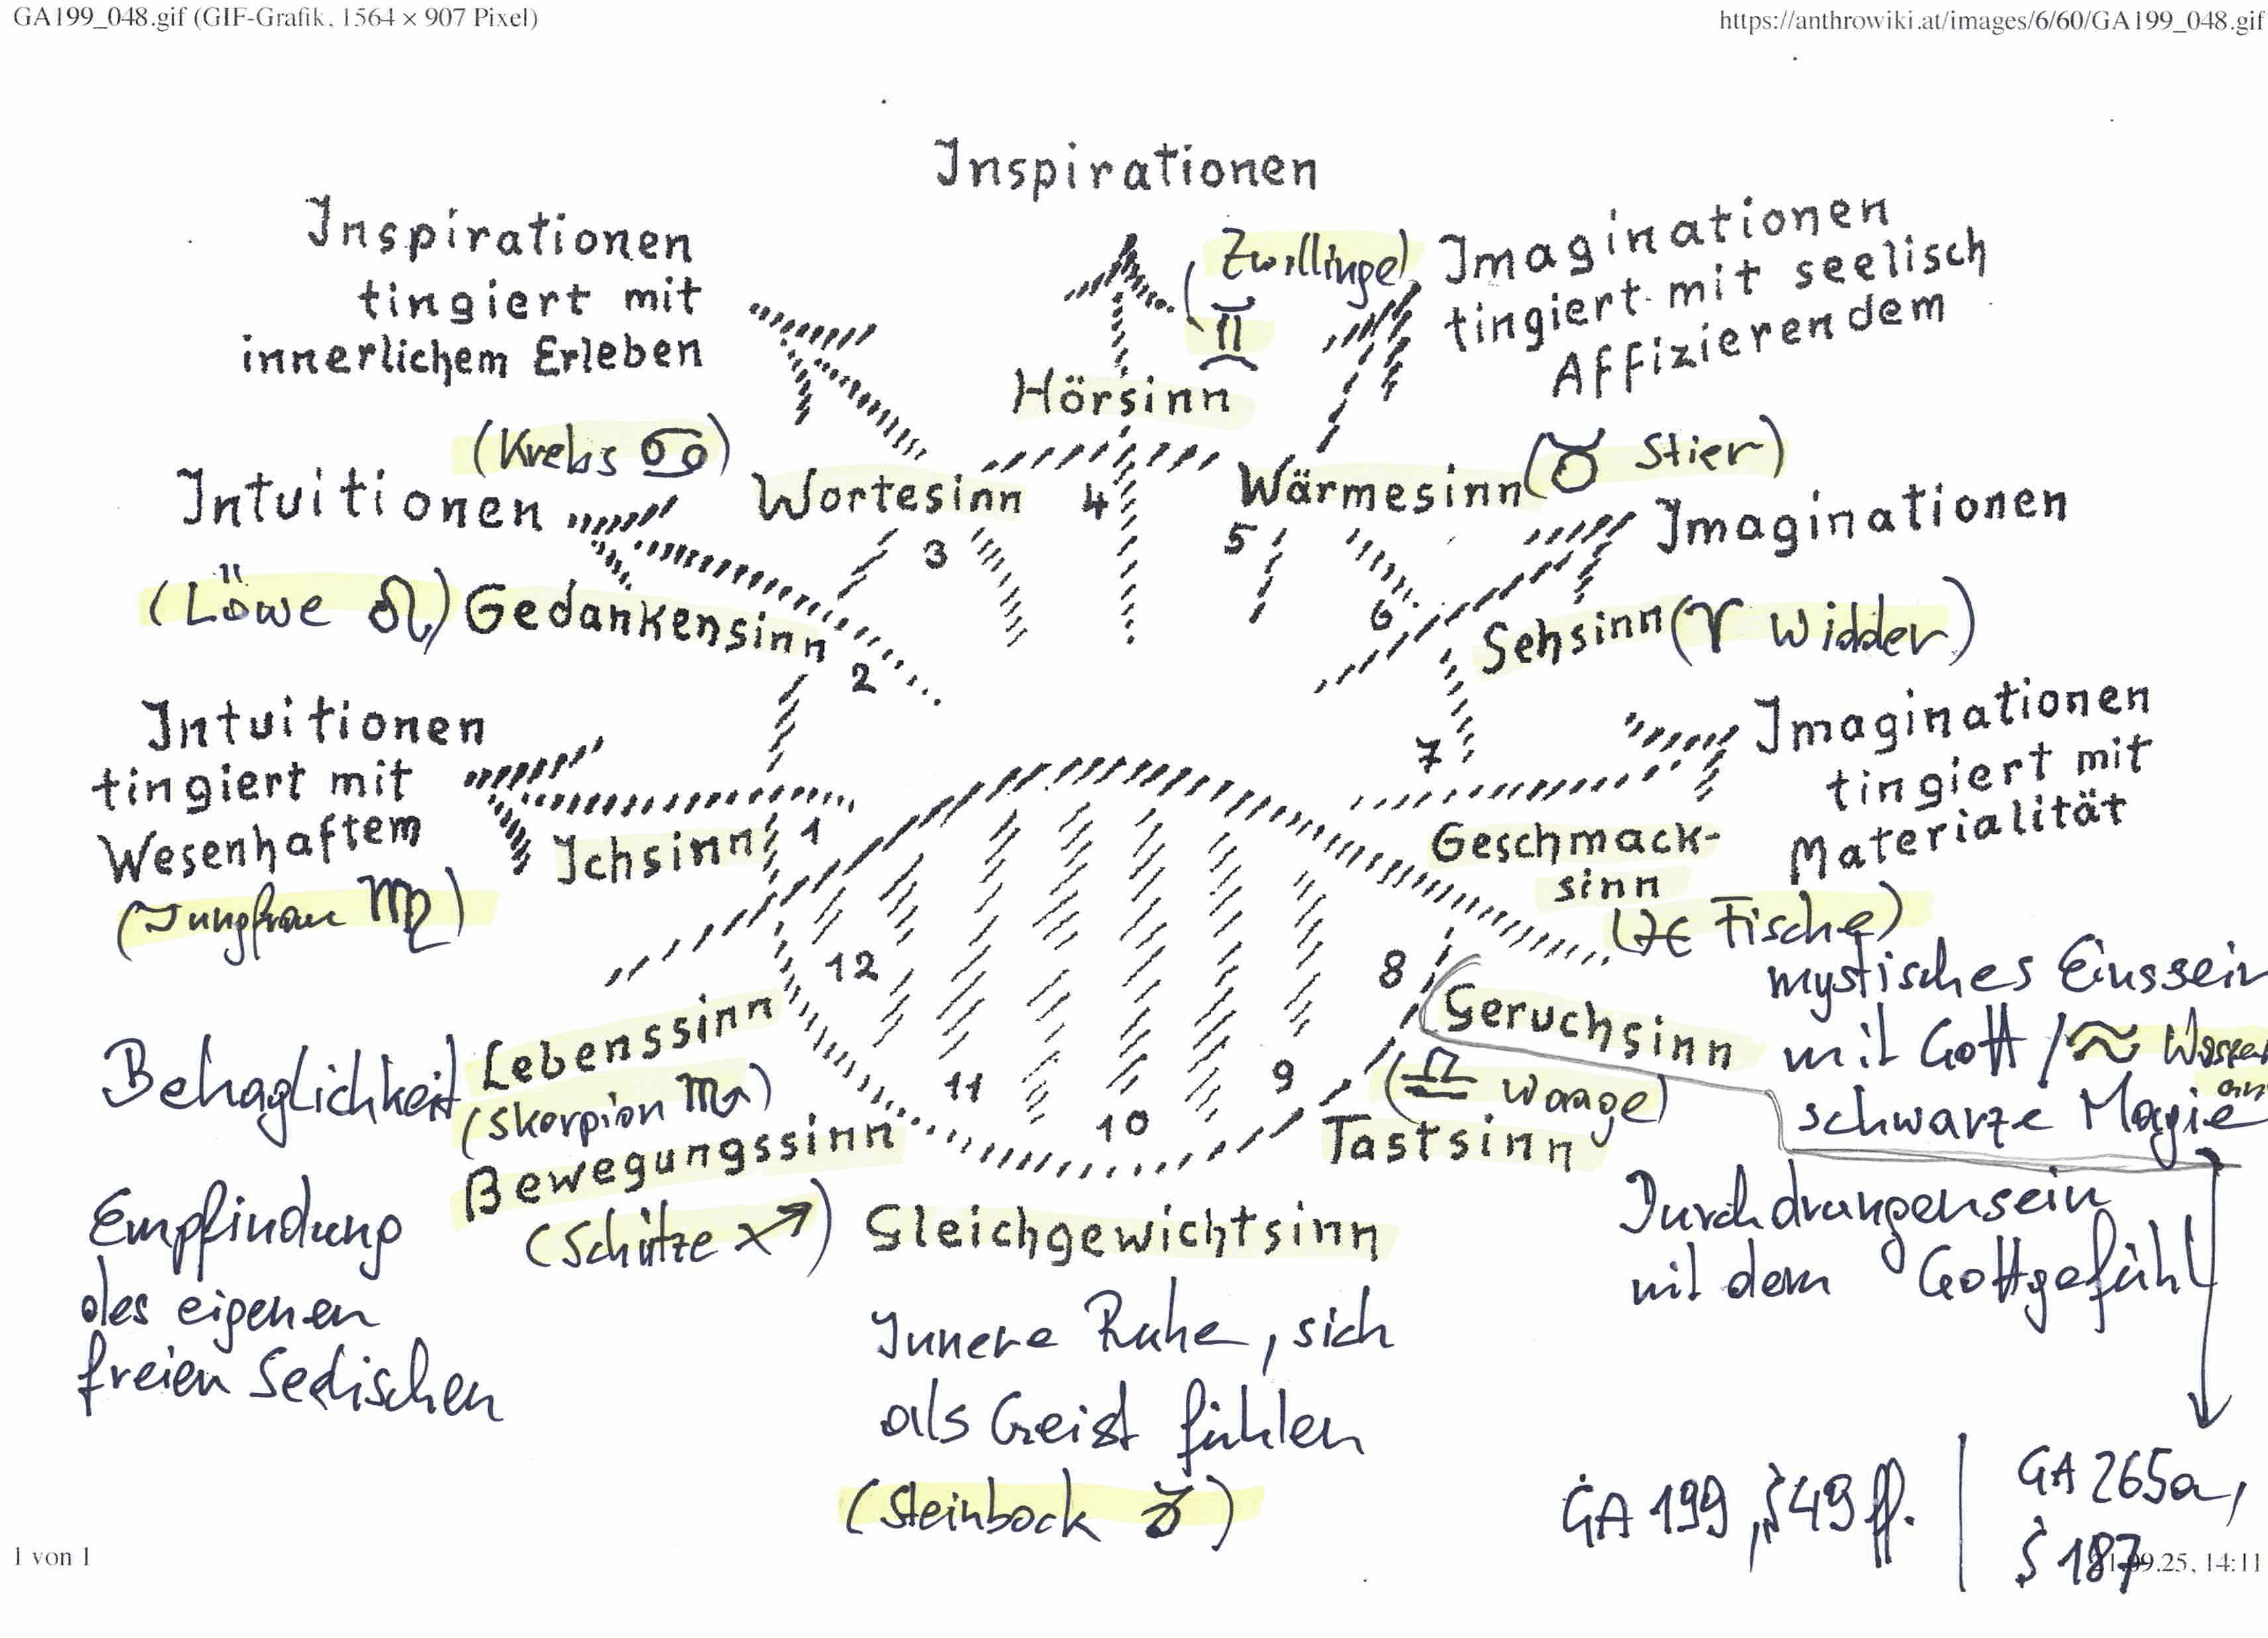 GA199_048.gif (GIF-Grafik, 1564 × 907 Pixel)
https://anthrowiki.at/images/6/60/GA199_048.gif
Inspirationen
Inspirationen
tingiert mit
innerlichem Erleben
(Zwillinge)
♊
Imaginationen
tingiert mit seelisch
Affizierendem
Hörsinn
(Krebs ♋)
Wortesinn
3
4
Wärmesinn (♉ Stier)
5
Intuitionen
Imaginationen
(Löwe ♌) Gedankensinn
2
6
Sehsinn (♈ Widder)
Intuitionen
tingiert mit
Wesenhaftem
(Jungfrau ♍)
Ichsinn
1
7
Imaginationen
tingiert mit
Materialität
Geschmack-
sinn
(♓ Fische)
12
8
Geruchsinn
mystisches Einssein
mit Gott / ♒
schwarze Magie
Behaglichkeit
Lebenssinn
(Skorpion ♏)
11
10
9
(♎ Waage)
Tastsinn
Bewegungssinn
(Schütze ♐)
Empfindung
des eigenen
freien Seelischen
Gleichgewichtsinn
Innere Ruhe, sich
als Geist fühlen
(Steinbock ♑)
Durchdrungensein
mit dem Gottgefühl
GA 199, S 49 ff.
GA 265a,
S 187
1 von 1
09.25, 14:11